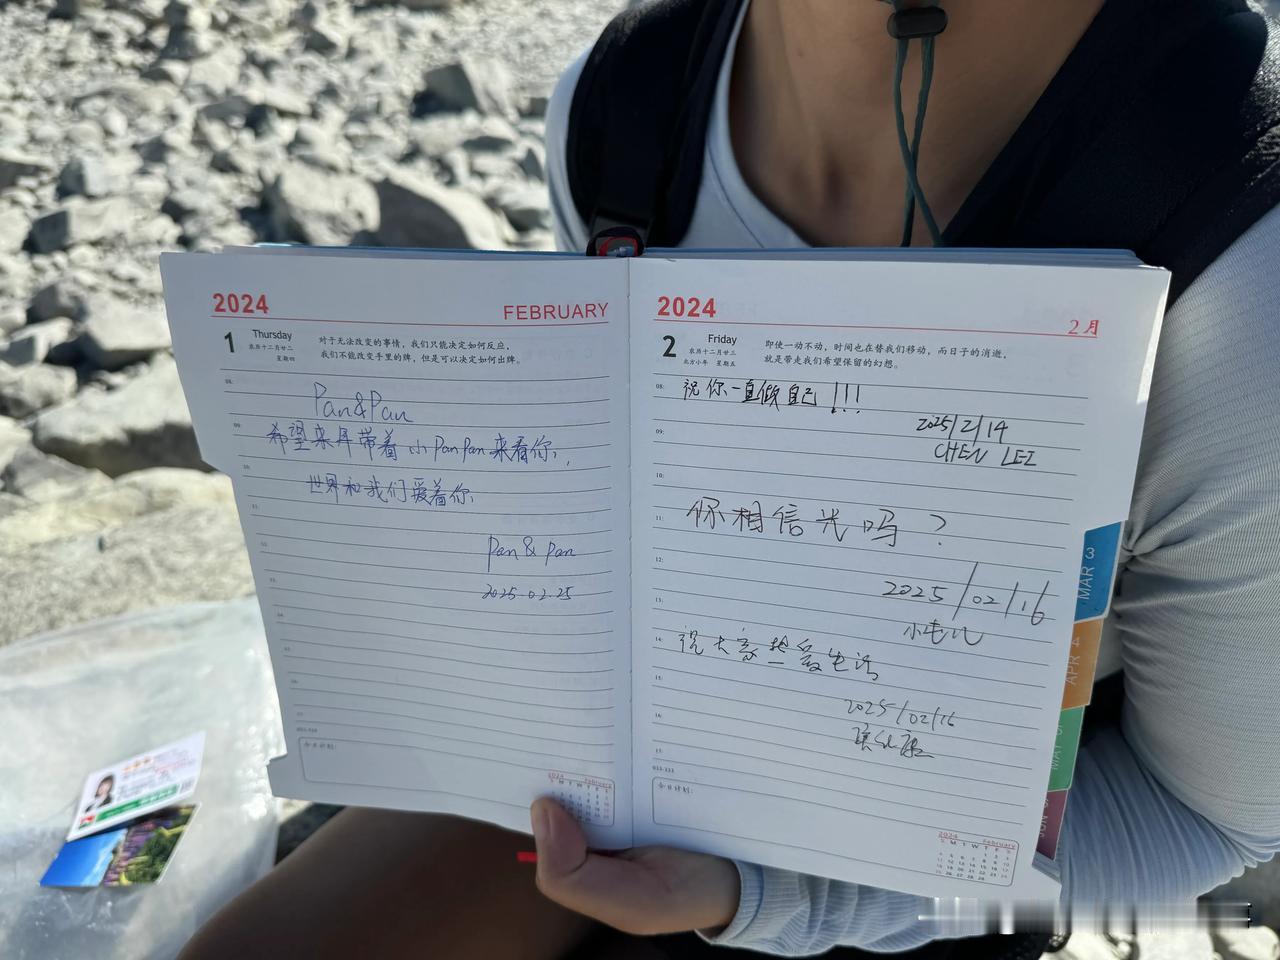 2024 FEBRUARY
1 Thursday
农历十二月廿二
星期四
对于无法改变的事情，我们只能决定如何反应，
我们不能改变手里的牌，但是可以决定如何出牌。
08:
Pan&Pan
09:
希望来年带着小PanPan来看你，
10:
世界和我们爱着你，
11:
12:
Pan & Pan
13:
2025.02.25
14:
15:
16:
17:
032-334
今日计划：
2024 February
S M T W T F S
2024 2月
2 Friday
农历十二月廿三
北方小年 星期五
即使一动不动，时间也在替我们移动，而日子的消逝，
就是带走我们希望保留的幻想。
08:
祝你一直做自己!!!
2025/2/14
09:
CHEN LEI
10:
11:
你相信光吗？
12:
2025/02/16
13:
14:
祝大家热爱生活
15:
2025/02/16
16:
17:
033-333
今日计划：
2024 February
S M T W T F S
MAR 3
APR 4
MAY 5
JUN 6